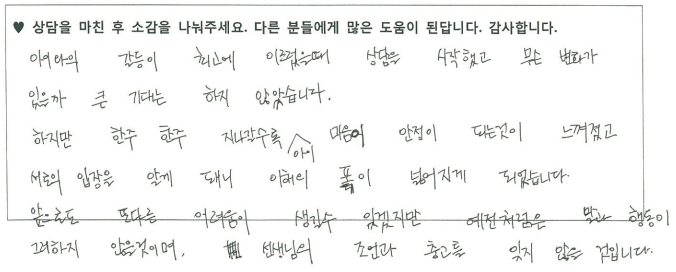 ♥ 상담을 마친 후 소감을 나눠주세요. 다른 분들에게 많은 도움이 된답니다. 감사합니다.
아이와의 갈등이 최고에 이르렀을때 상담을 시작했고 무슨 변화가
있을까 큰 기대는 하지 않았습니다.
하지만 한주 한주 지나갈수록 아이 마음이 안정이 되는것이 느껴졌고
서로의 입장을 알게 되니 이해의 폭이 넓어지게 되었습니다.
앞으로도 또다른 어려움이 생길수 있겠지만 예전처럼은 말과 행동이
그러하지 않을것이며, 선생님의 조언과 충고를 잊지 않을 것입니다.